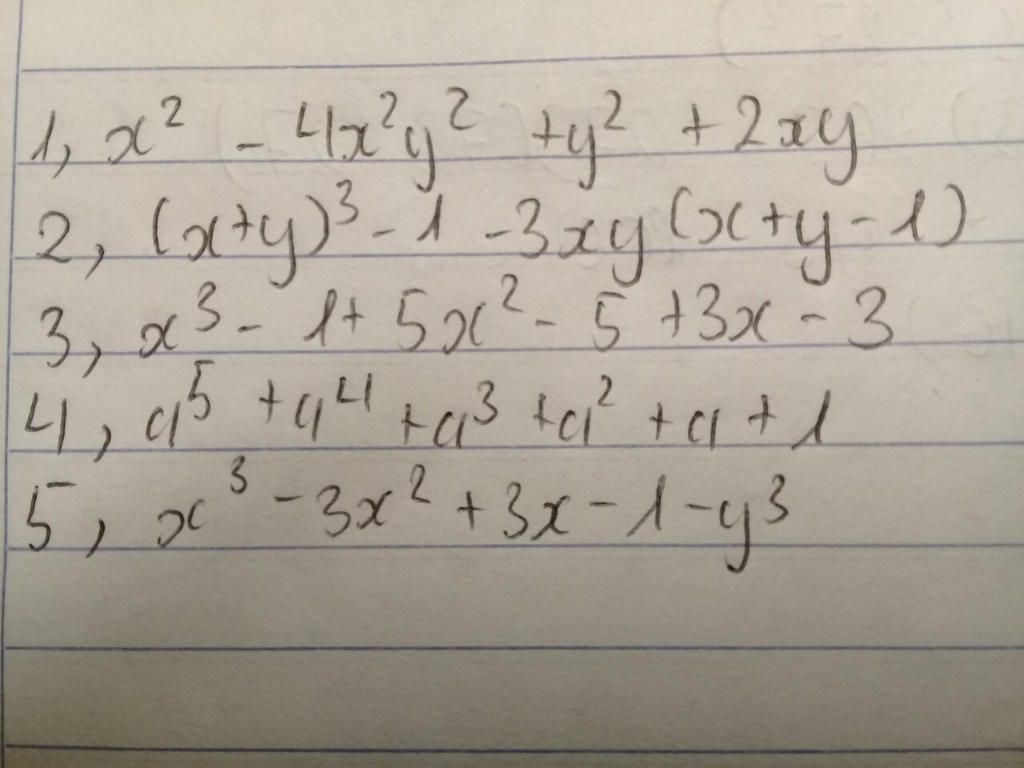 1, x² - 4x²y² + y² + 2xy
2, (x+y)³ - 1 - 3xy(x+y-1)
3, x³ - 1 + 5x² - 5 + 3x - 3
4, a⁵ + a⁴ + a³ + a² + a + 1
5, x³ - 3x² + 3x - 1 - y³